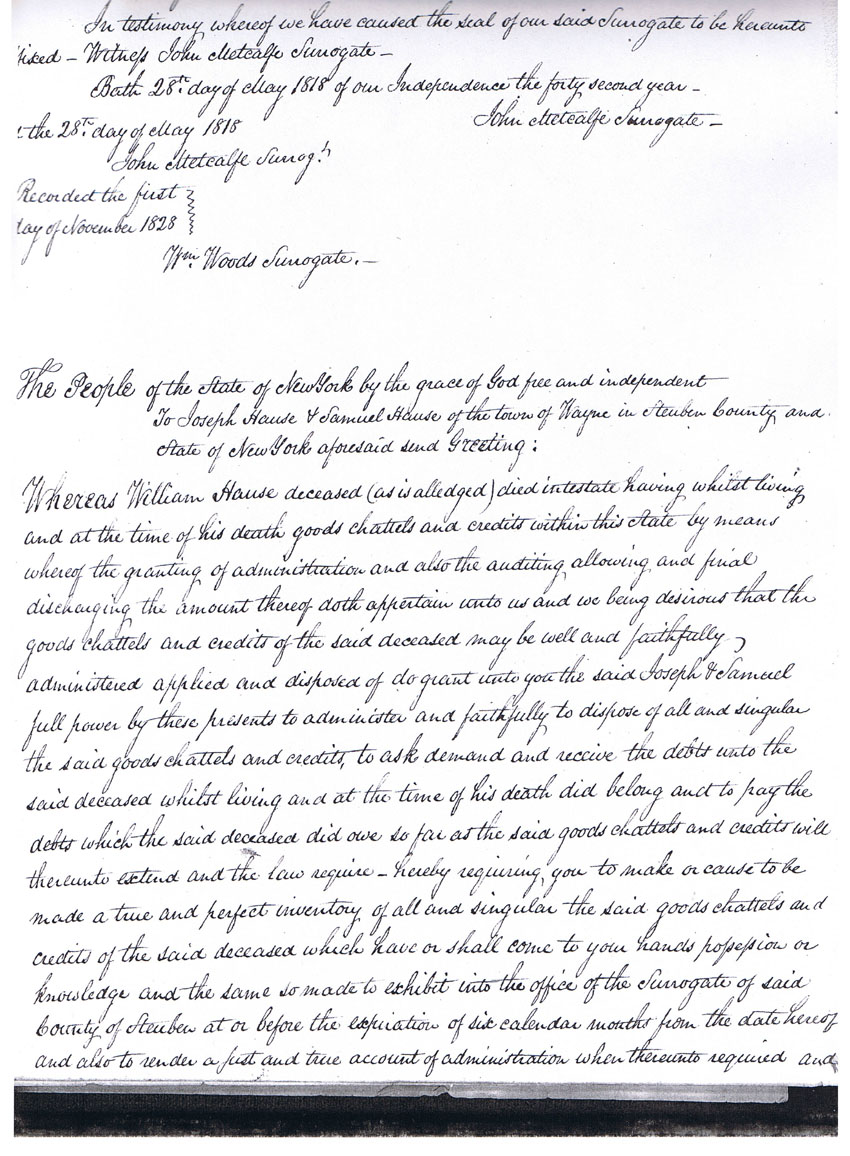 In testimony whereof we have caused the seal of our said Surrogate to be hereunto
fixed – Witness John Metcalfe Surrogate –
Bath 28th day of May 1818 of our Independence the forty second year –
John Metcalfe Surrogate –
the 28th day of May 1818
John Metcalfe Surrog.
Recorded the first
day of November 1828
Wm Woods Surrogate. –
The People of the State of New York by the grace of God free and independent
To Joseph Hause & Samuel Hause of the town of Wayne in Steuben County and
State of New York aforesaid send Greeting:
Whereas William Hause deceased (as is alledged) died intestate having whilst living
and at the time of his death goods chattels and credits within this State by means
whereof the granting of administration and also the auditing allowing and final
discharging the amount thereof doth appertain unto us and we being desirous that the
goods chattels and credits of the said deceased may be well and faithfully
administered applied and disposed of do grant unto you the said Joseph & Samuel
full power by these presents to administer and faithfully to dispose of all and singular
the said goods chattels and credits, to ask demand and receive the debts unto the
said deceased whilst living and at the time of his death did belong and to pay the
debts which the said deceased did owe so far as the said goods chattels and credits will
thereunto extend and the law require – hereby requiring you to make or cause to be
made a true and perfect inventory of all and singular the said goods chattels and
credits of the said deceased which have or shall come to your hands possession or
knowledge and the same so made to exhibit into the office of the Surrogate of said
County of Steuben at or before the expiration of six calendar months from the date hereof
and also to render a just and true account of administration when thereunto required and